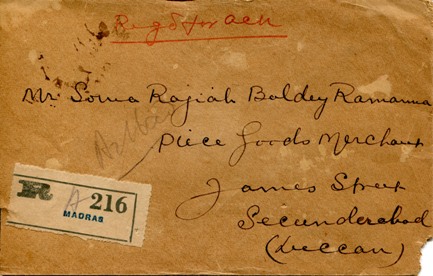 Regd for ack
Mr Soma Rajiah Baldey Ramanna
Piece Goods Merchant
James Street
Secunderabad
(Deccan)
R A 216
MADRAS